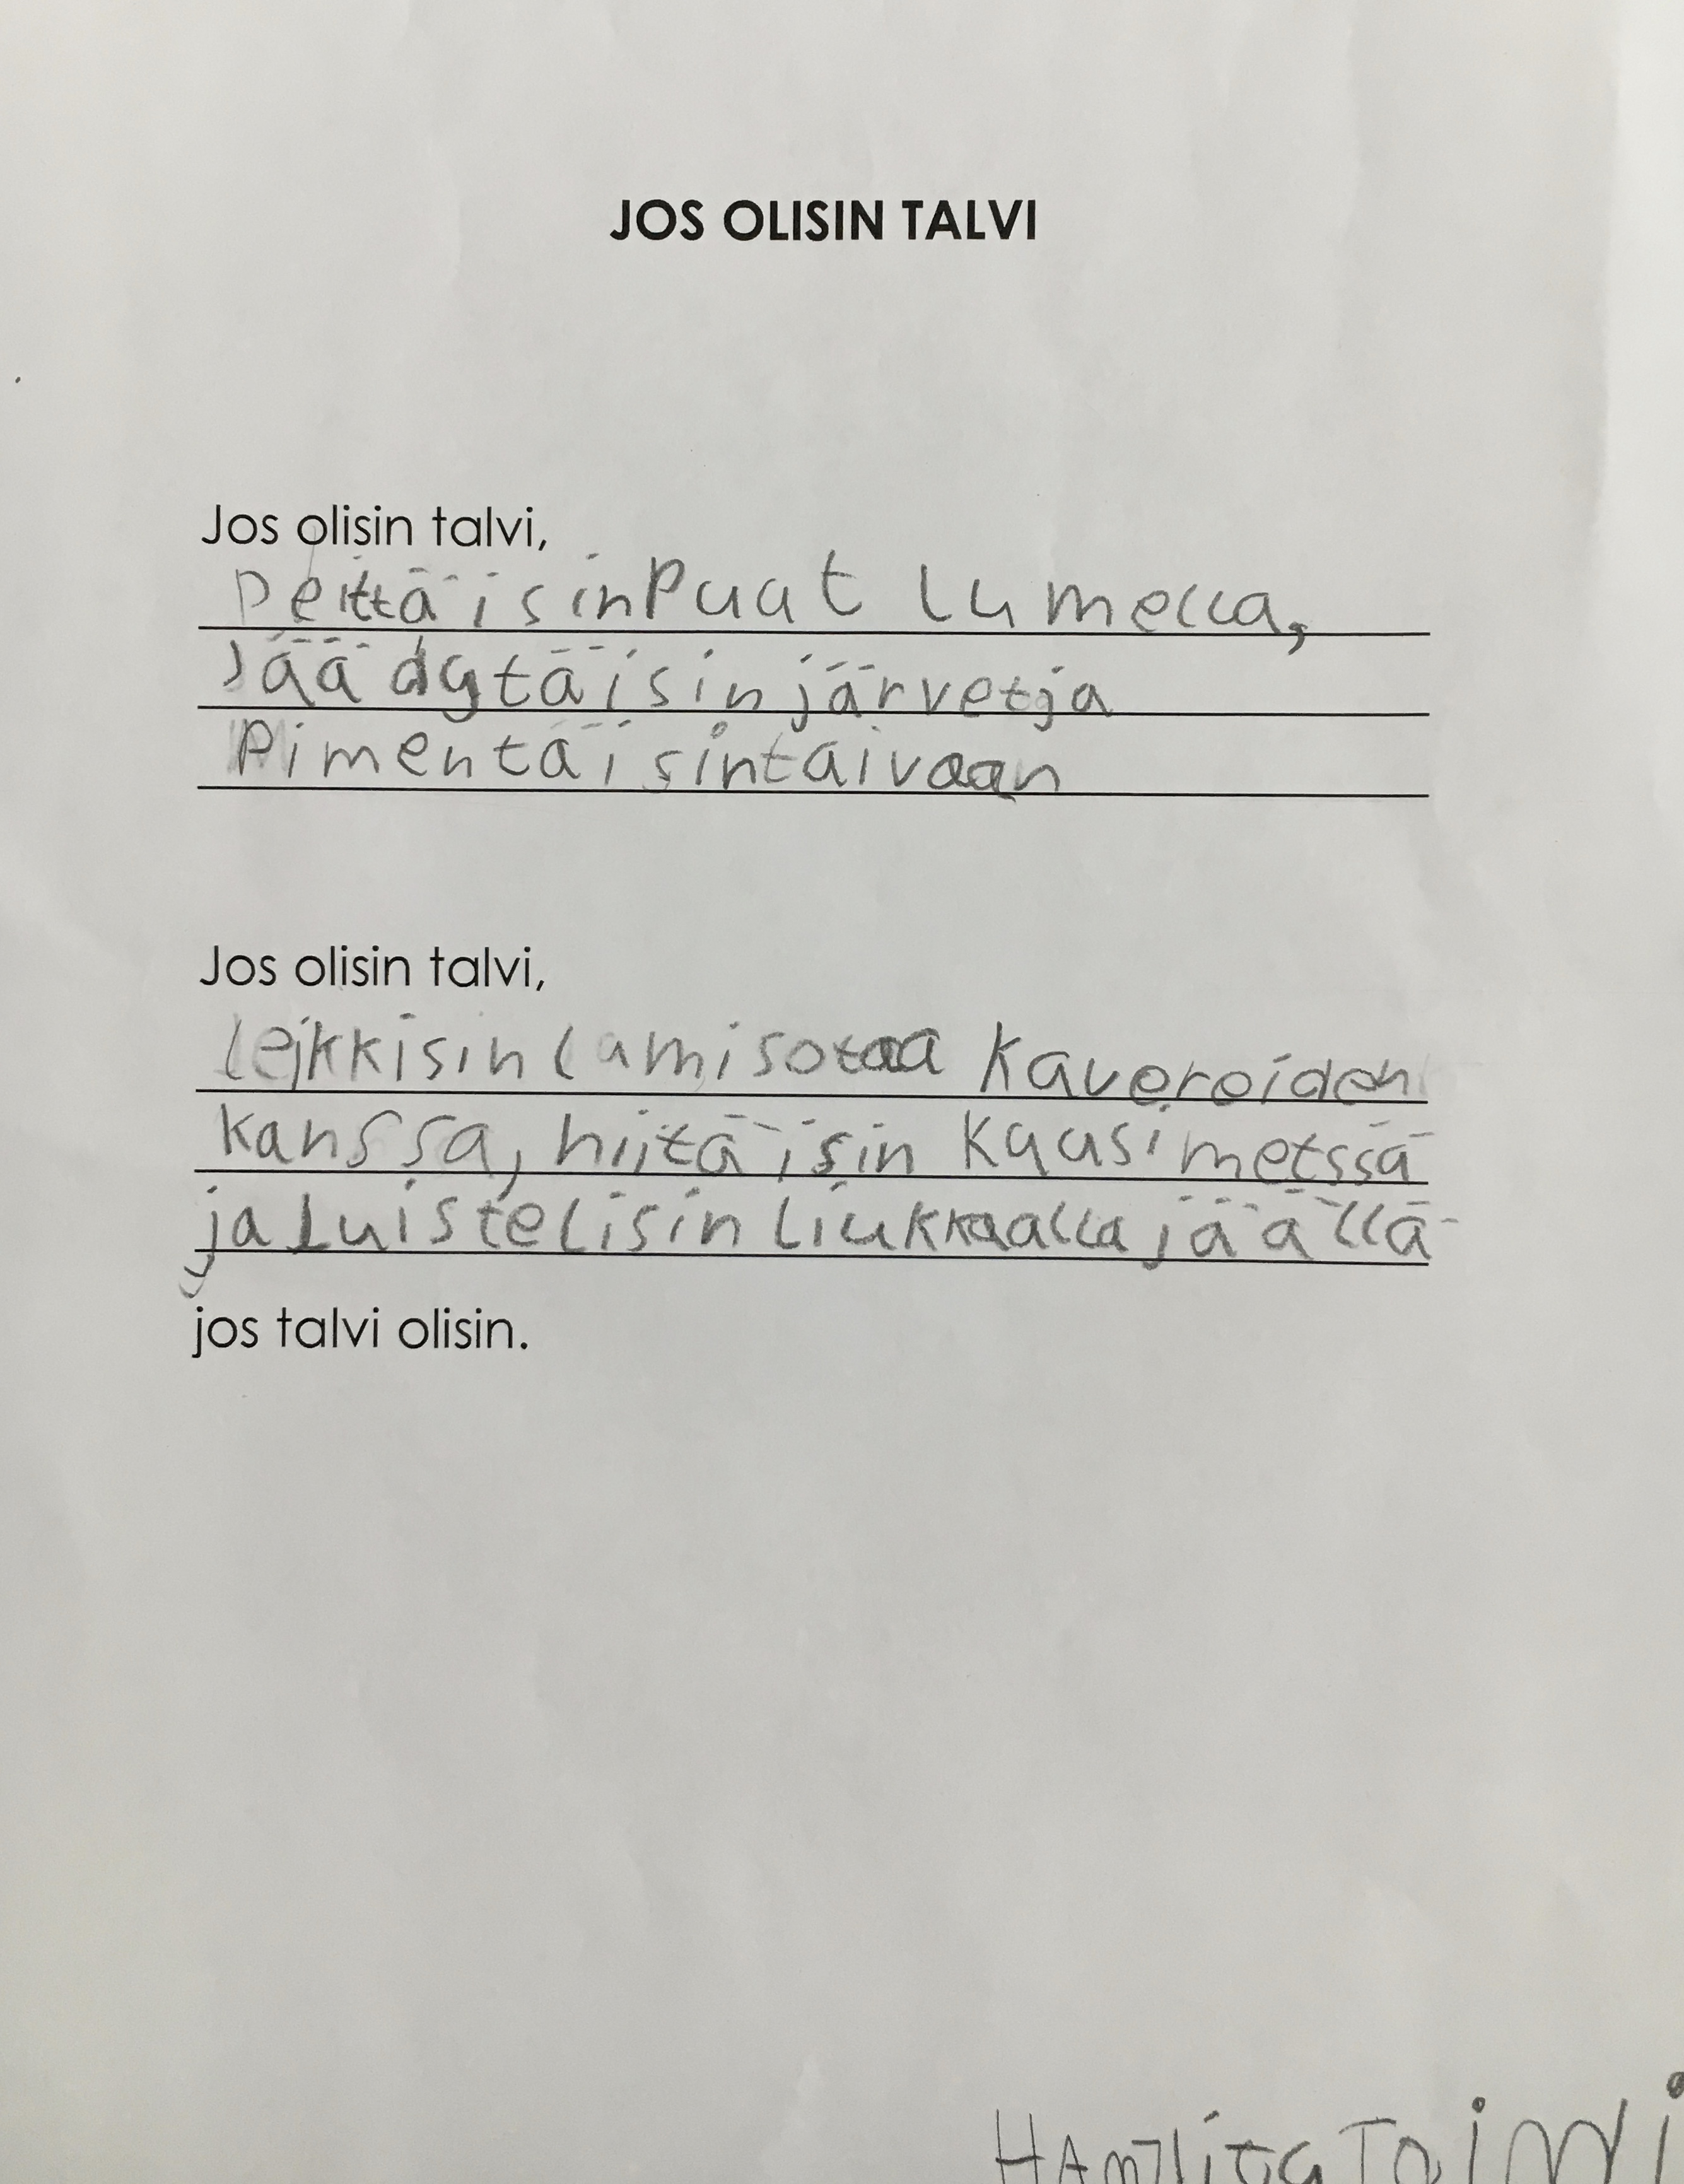 JOS OLISIN TALVI
Jos olisin talvi,
Peittäisin Puat lumella,
Jäädytäisin järvet ja
Pimentäisin taivaan
Jos olisin talvi,
leikkisin lumisotaa kavereiden
kanssa, hiitäisin kuusimetssä
ja luistelisin liukkaalla jäällä
jos talvi olisin.
Toimi